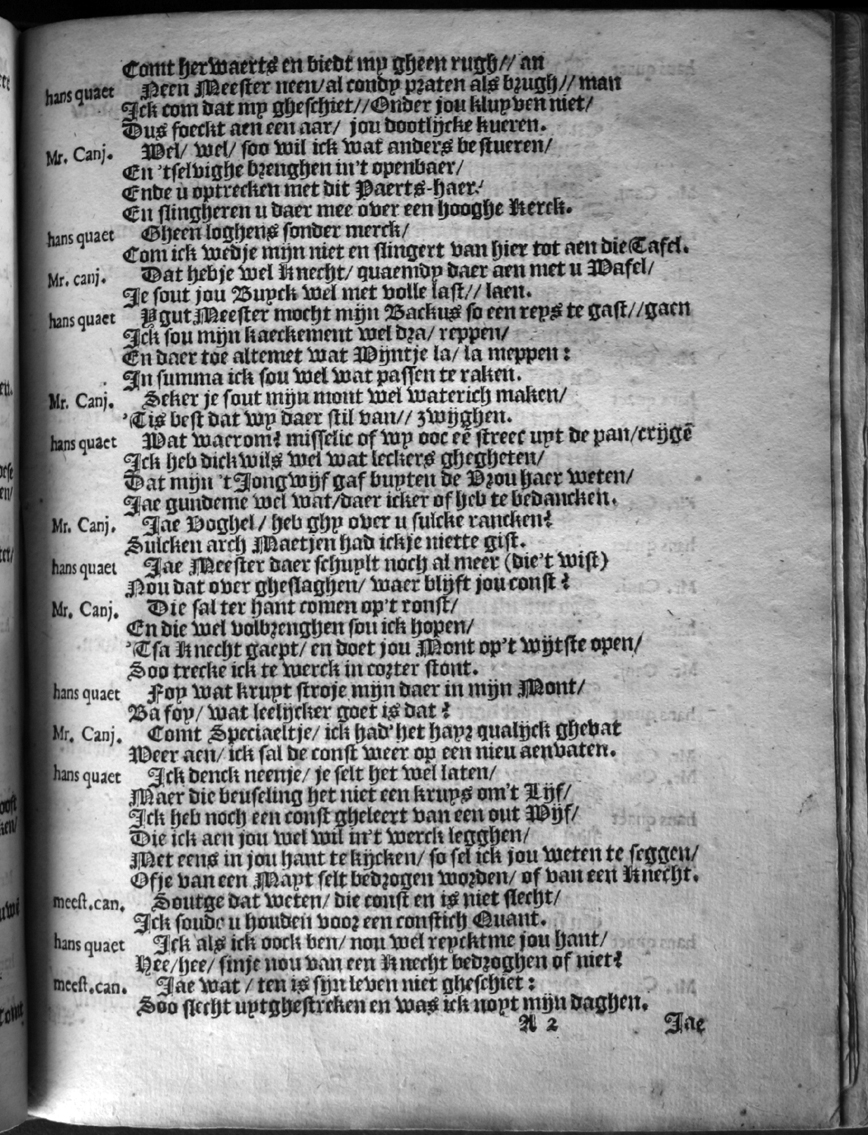 Comt herwaerts en biedt my gheen rugh// an
hans quaet Neen Meester neen/ al condy praten als brugh// man
Ick com dat my gheschiet// Onder jou kluyven niet/
Dus soeckt aen een aar/ jou dootlijcke kueren.
Mr. Canj. Wel/ wel/ soo wil ick wat anders bestueren/
En 'tselvighe brenghen in't openbaer/
Ende u optrecken met dit Paerts-haer/
En slingheren u daer mee over een hooghe Kerck.
hans quaet Gheen loghens sonder merck/
Com ick wedje mijn niet en slingert van hier tot aen die Tafel.
Mr. canj. Dat hebje wel Knecht/ quaemdy daer aen met u Wafel/
Je sout jou Buyck wel met volle last// laen.
hans quaet Ygut Meester mocht mijn Backus so een reys te gast// gaen
Ick sou mijn kaeckement wel dra/ reppen/
En daer toe altemet wat Wijntje la/ la meppen:
In summa ick sou wel wat passen te raken.
Mr. Canj. Seker je sout mijn mont wel waterich maken/
'Tis best dat wy daer stil van// zwijghen.
hans quaet Wat waerom? misselic of wy ooc eē streec uyt de pan/ crijgē
Ick heb dickwils wel wat leckers ghegheten/
Dat mijn 't Jongwijf gaf buyten de Vrou haer weten/
Jae gundeme wel wat/ daer icker of heb te bedancken.
Mr. Canj. Jae Voghel/ heb ghy over u sulcke rancken?
Sulcken arch Maetjen had ickje niette gist.
hans quaet Jae Meester daer schuylt noch al meer (die't wist)
Nou dat over gheslaghen/ waer blijft jou const?
Mr. Canj. Die sal ter hant comen op't ronst/
En die wel volbrenghen sou ick hopen/
'Tsa Knecht gaept/ en doet jou Mont op't wijtste open/
Soo trecke ick te werck in corter stont.
hans quaet Foy wat kruypt stroje mijn daer in mijn Mont/
Ba foy/ wat leelijcker goet is dat?
Mr. Canj. Comt Speciaeltje/ ick had' het hayr qualijck ghevat
Weer aen/ ick sal de const weer op een nieu aenvaten.
hans quaet Ick denck neenje/ je selt het wel laten/
Maer die beuseling het niet een kruys om't Lijf/
Ick heb noch een const gheleert van een out Wijf/
Die ick aen jou wel wil in't werck legghen/
Met eens in jou hant te kijcken/ so sel ick jou weten te seggen/
Ofje van een Mayt selt bedrogen worden/ of van een Knecht.
meest.can. Soutge dat weten/ die const en is niet slecht/
Ick soude u houden voor een constich Quant.
hans quaet Ick als ick oock ben/ nou wel reycktme jou hant/
Hee/ hee/ sinje nou van een Knecht bedroghen of niet?
meest.can. Jae wat/ ten is sijn leven niet gheschiet:
Soo slecht uytghestreken en was ick noyt mijn daghen.
A 2 Jae